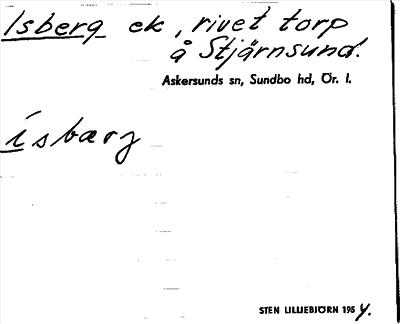 Isberg ek, rivet torp
å Stjärnsund.
Askersunds sn, Sundbo hd, Ör. l.
ísbærj
STEN LILLIEBJÖRN 1954.